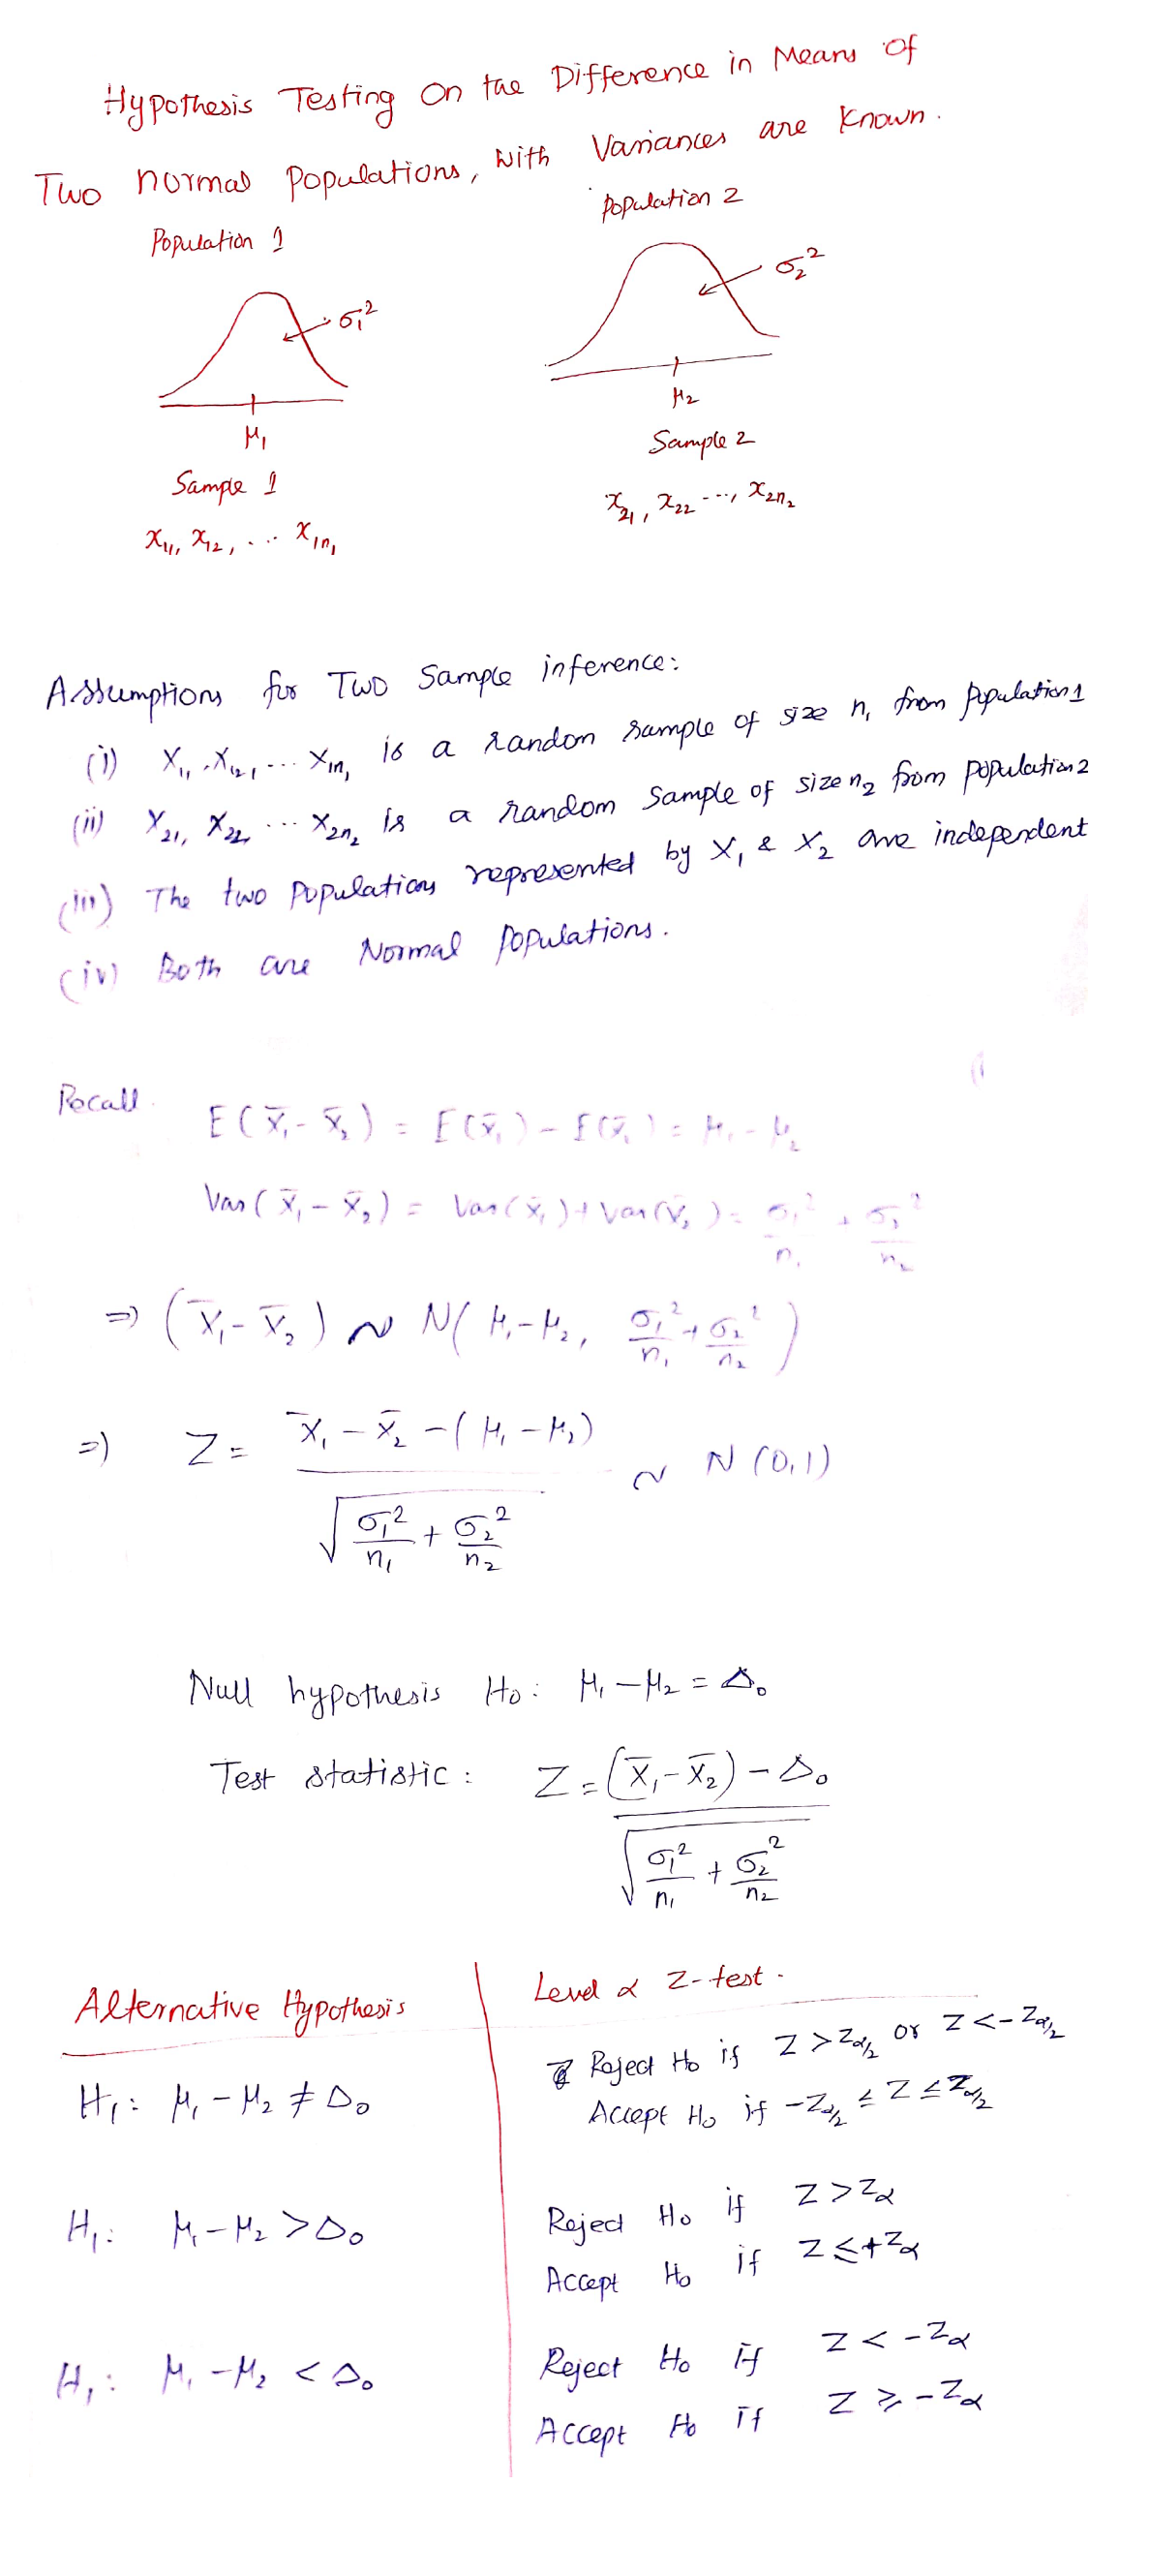 Hypothesis Testing On the Difference in Means Of
Two normal populations, with Variances are Known.
Population 1
Population 2
σ₁²
σ₂²
μ₁
μ₂
Sample 1
Sample 2
x₁₁, x₁₂, ... x₁ₙ₁
x₂₁, x₂₂ ..., x₂ₙ₂
Assumptions for Two Sample inference:
(i) X₁₁, X₁₂, ... X₁ₙ₁ is a random sample of size n₁ from population 1
(ii) X₂₁, X₂₂ ... X₂ₙ₂ is a random sample of size n₂ from population 2
(iii) The two populations represented by X₁ & X₂ are independent
(iv) Both are Normal populations.
Recall
E(X̄₁ - X̄₂) = E(X̄₁) - E(X̄₂) = μ₁ - μ₂
Var(X̄₁ - X̄₂) = Var(X̄₁) + Var(X̄₂) = σ₁²/n₁ + σ₂²/n₂
⇒ (X̄₁ - X̄₂) ~ N(μ₁ - μ₂, σ₁²/n₁ + σ₂²/n₂)
⇒ Z = X̄₁ - X̄₂ - (μ₁ - μ₂) / √(σ₁²/n₁ + σ₂²/n₂) ~ N(0,1)
Null hypothesis H₀: μ₁ - μ₂ = Δ₀
Test statistic: Z = (X̄₁ - X̄₂) - Δ₀ / √(σ₁²/n₁ + σ₂²/n₂)
Alternative Hypothesis
Level α Z-test.
H₁: μ₁ - μ₂ ≠ Δ₀
Reject H₀ if Z > Z_α/2 or Z < -Z_α/2
Accept H₀ if -Z_α/2 ≤ Z ≤ Z_α/2
H₁: μ₁ - μ₂ > Δ₀
Reject H₀ if Z > Z_α
Accept H₀ if Z ≤ +Z_α
H₁: μ₁ - μ₂ < Δ₀
Reject H₀ if Z < -Z_α
Accept H₀ if Z ≥ -Z_α